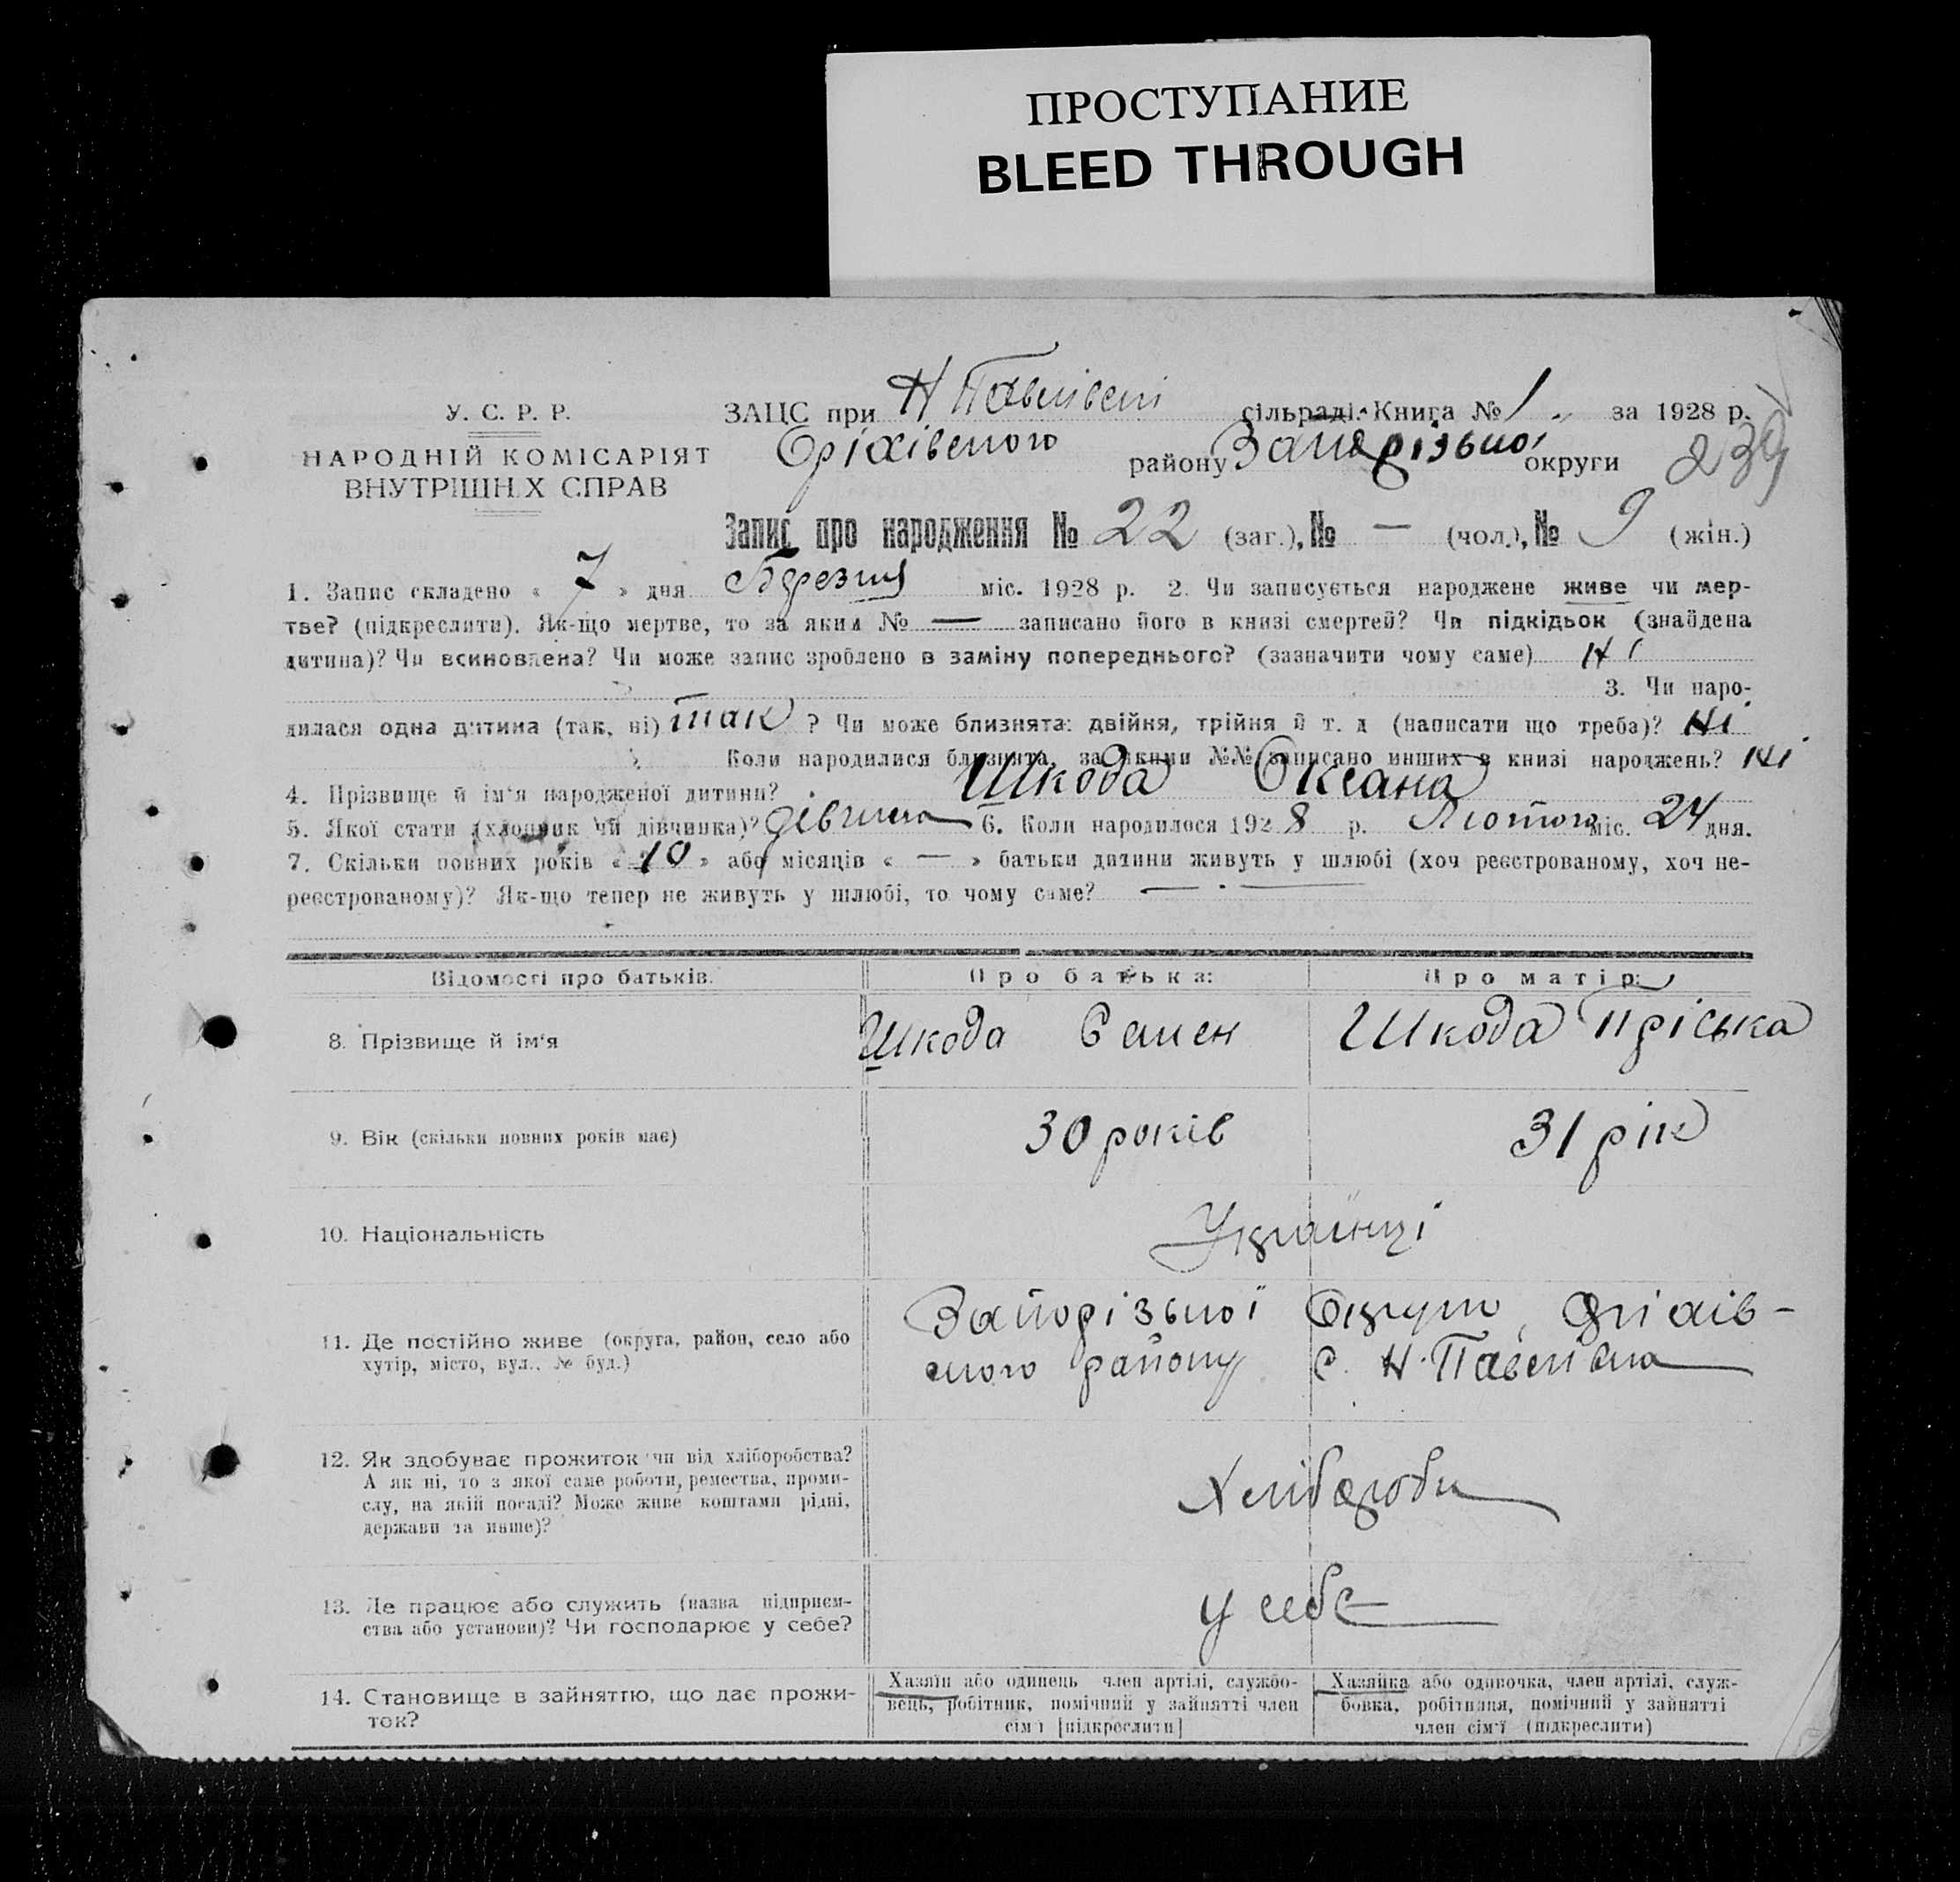 ПРОСТУПАНИЕ
BLEED THROUGH
У. С. Р. Р.
НАРОДНІЙ КОМІСАРІЯТ
ВНУТРІШНІХ СПРАВ
ЗАЦС при Н Павлівскі сільраді. Книга № 1 за 1928 р.
Оріхівського району Запорізької округи 239
Запис про народження № 22 (заг.), № — (чол.), № 9 (жін.)
1. Запис складено « 7 » дня Березня міс. 1928 р. 2. Чи записується народжене живе чи мер-
тве? (підкреслити). Як-що мертве, то за яким № — записано його в книзі смертей? Чи підкідьок (знайдена
дитина)? Чи всиновлена? Чи може запис зроблено в заміну попереднього? (зазначити чому саме) Ні
3. Чи наро-
дилася одна дитина (так, ні) так ? Чи може близнята: двійня, трійня й т. д (написати що треба)? Ні
Коли народилися близнята, за якими №№ записано инших в книзі народжень? Ні
4. Прізвище й ім'я народженої дитини? Шкода Оксана
5. Якої стати (хлопчик чи дівчинка)? дівчина 6. Коли народилося 1928 р. Лютого міс. 24 дня.
7. Скільки повних років « 10 » або місяців « — » батьки дитини живуть у шлюбі (хоч реєстрованому, хоч не-
реєстрованому)? Як-що тепер не живуть у шлюбі, то чому саме? —
Відомості про батьків. Про батька: Про матір:
8. Прізвище й ім'я Шкода Семен Шкода Пріська
9. Вік (скільки повних років має) 30 років 31 рік
10. Національність Українці
11. Де постійно живе (округа, район, село або
хутір, місто, вул., № буд.)
Запорізької Округи, Оріхів-
ського району с. Н-Павлівка
12. Як здобуває прожиток чи від хліборобства?
А як ні, то з якої саме роботи, ремества, проми-
слу, на якій посаді? Може живе коштами рідні,
держави та инше)?
Хлібороби
13. Де працює або служить (назва підприєм-
ства або установи)? Чи господарює у себе?
у себе
14. Становище в зайняттю, що дає прожи-
ток?
Хазяїн або одинець член артілі, службо-
вець, робітник, помічний у зайнятті член
сім'ї [підкреслити]
Хазяйка або одиночка, член артілі, служ-
бовка, робітниця, помічний у зайнятті
член сім'ї (підкреслити)